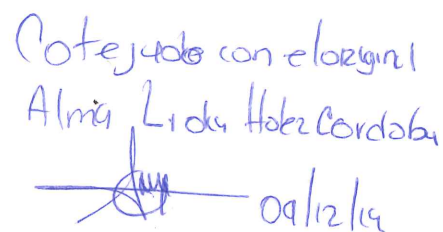 Cotejado con el original
Alma Lidia Hdez Cordoba
09/12/19